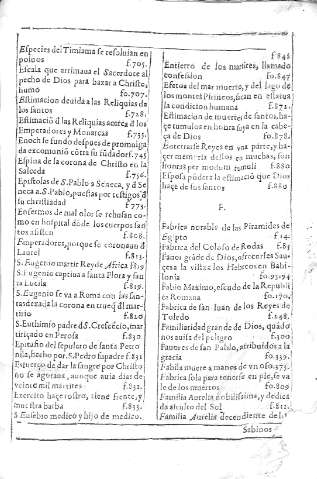 Especies del Timiama se resoluian en
poluos f.705.
Escala que arrimaua el Sacerdote al
pecho de Dios para baxar a Christo,
humo fo.707.
Estimacion deuida a las Reliquias de
los santos f.728.
Estimació d las Reliquias acerca d los
Emperadores y Monarcas f.735.
Enoch se fundo despues de promulga
da excomunió cótra su fúdador f.745
Espina de la corona de Christo en la
Salceda f.756.
Epistolas de S.Pablo a Seneca, y d Se
neca a S.Pablo, puestas por testigos d
su christiádad f.775.
Enfermos de mal olor se rehusan co-
mo en hospital dóde los cuerpos san-
tos assisten f.808.
Emperadores, porque se coronauan d
Laurel f.813.
S.Eugenio martir Rey de Africa f.819
S.Eugenio capuina a santa Flora y san
ta Lucila f.819.
S.Eugenio se va a Roma con las san-
tas dexada la corona en trueq̃ d mar-
tirio f.820
S.Euthimio padre de S.Crescécio, mar
tirizado en Perosa f.830
Epitafio del sepulcro de santa Petro
nila, hecho por S.Pedro su padre f.831
Esfuerço de dar la sangre por Christo
no se agotara, aunque auia dias de
veinte mil martires f.832.
Exercito haze rostro, tiene frente, y
muestra barba f.835.
S.Eusebio medico y hijo de medico.
f.846
Entierro de los martires, llamado
confession fo.847
Efetos del mar muerto, y del lago de
los montes Pirineos, siruen
la condicion humana f.872.
Estimacion de muertos de santos, ha-
çe tumulos en honra suya en la cabe-
ça de Dios fo.878.
Enterrarse Reyes en vna parte, y ha-
çer memoria dellos en muchas, son
honras por modum tumuli f.880
Elposo pódera la estimació que Dios
haçe de los santos f.880
F.
Fabrica notable de las Piramides de
Egipto f.14.
Fabrica del Coloso de Rodas f.85
Fauor gráde de Dios, ofrecerles Sau-
çes a la vista a los Hebreos en Babi-
lonia fo.994
Fabio Maximo, escudo de la Republi
ca Romana fo.170.
Fabrica de san Iuan de los Reyes de
Toledo f.248.
Familiaridad gran de de Dios, quádo
nos auisa del peligro f.300
Fauores de san Pablo, atribuidos a la
gracia fo.339.
Fabila muere a manos de vn oso f.375.
Fabrica sola para tenerse en pie, se va
le de los muertos fo.809
Familia Aurelia nobilissima, y dedica
da al culto del Sol f.812.
Familia Aurelia decendiente de los
Sabinos